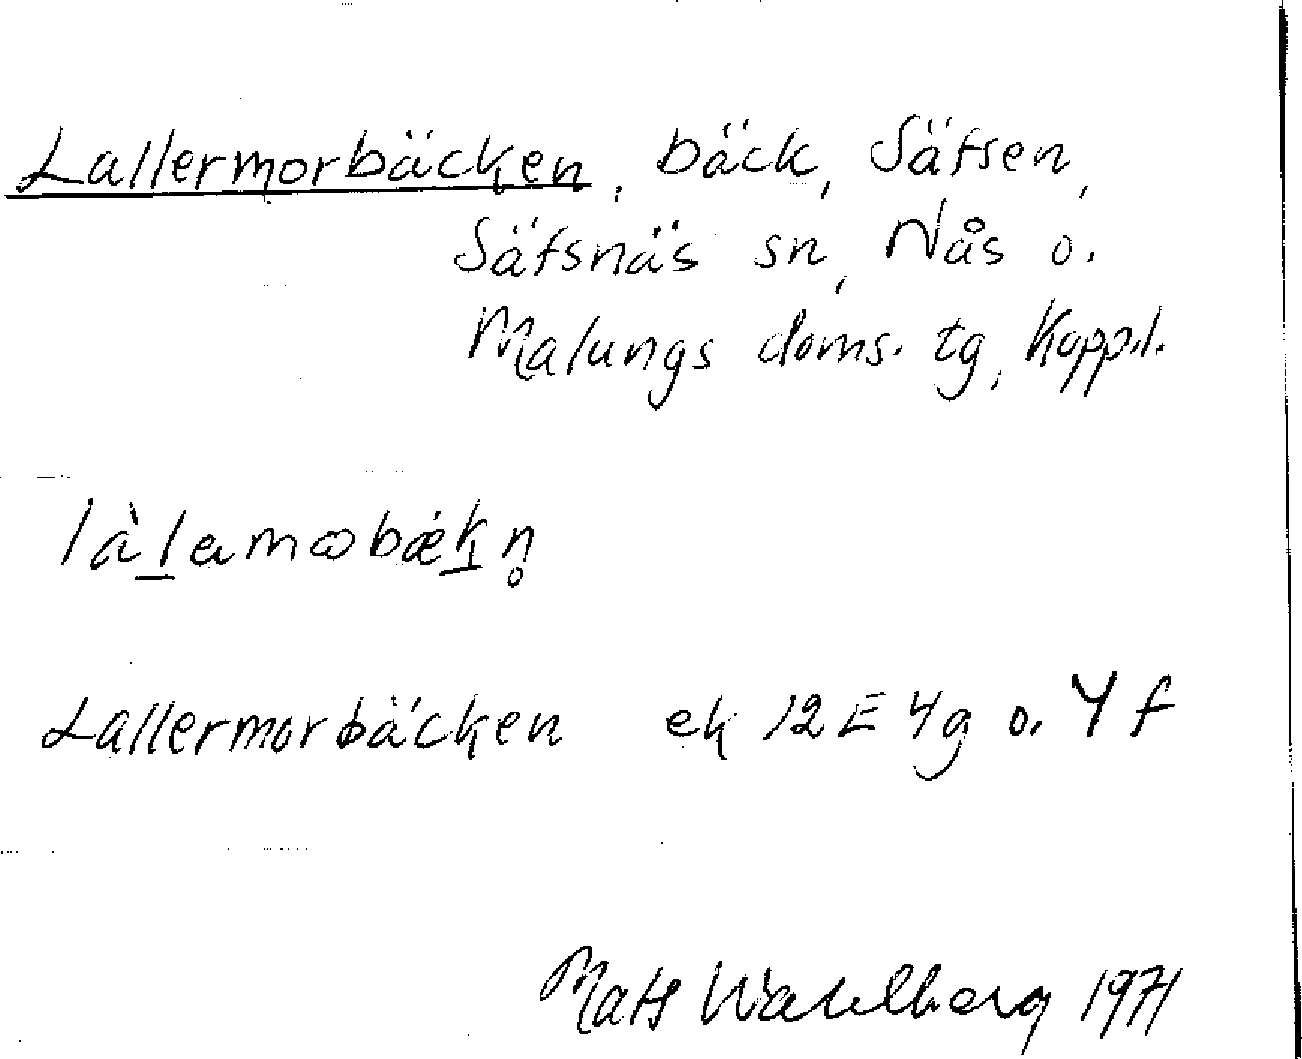 Lallermorbäcken, bäck, Säfsen,
Säfsnäs sn, Nås o.
Malungs doms. tg, Kopp.l.
làlamωbǽkn̥
Lallermorbäcken ek 12E 4g o. 4f
Mats Wahlberg 1971